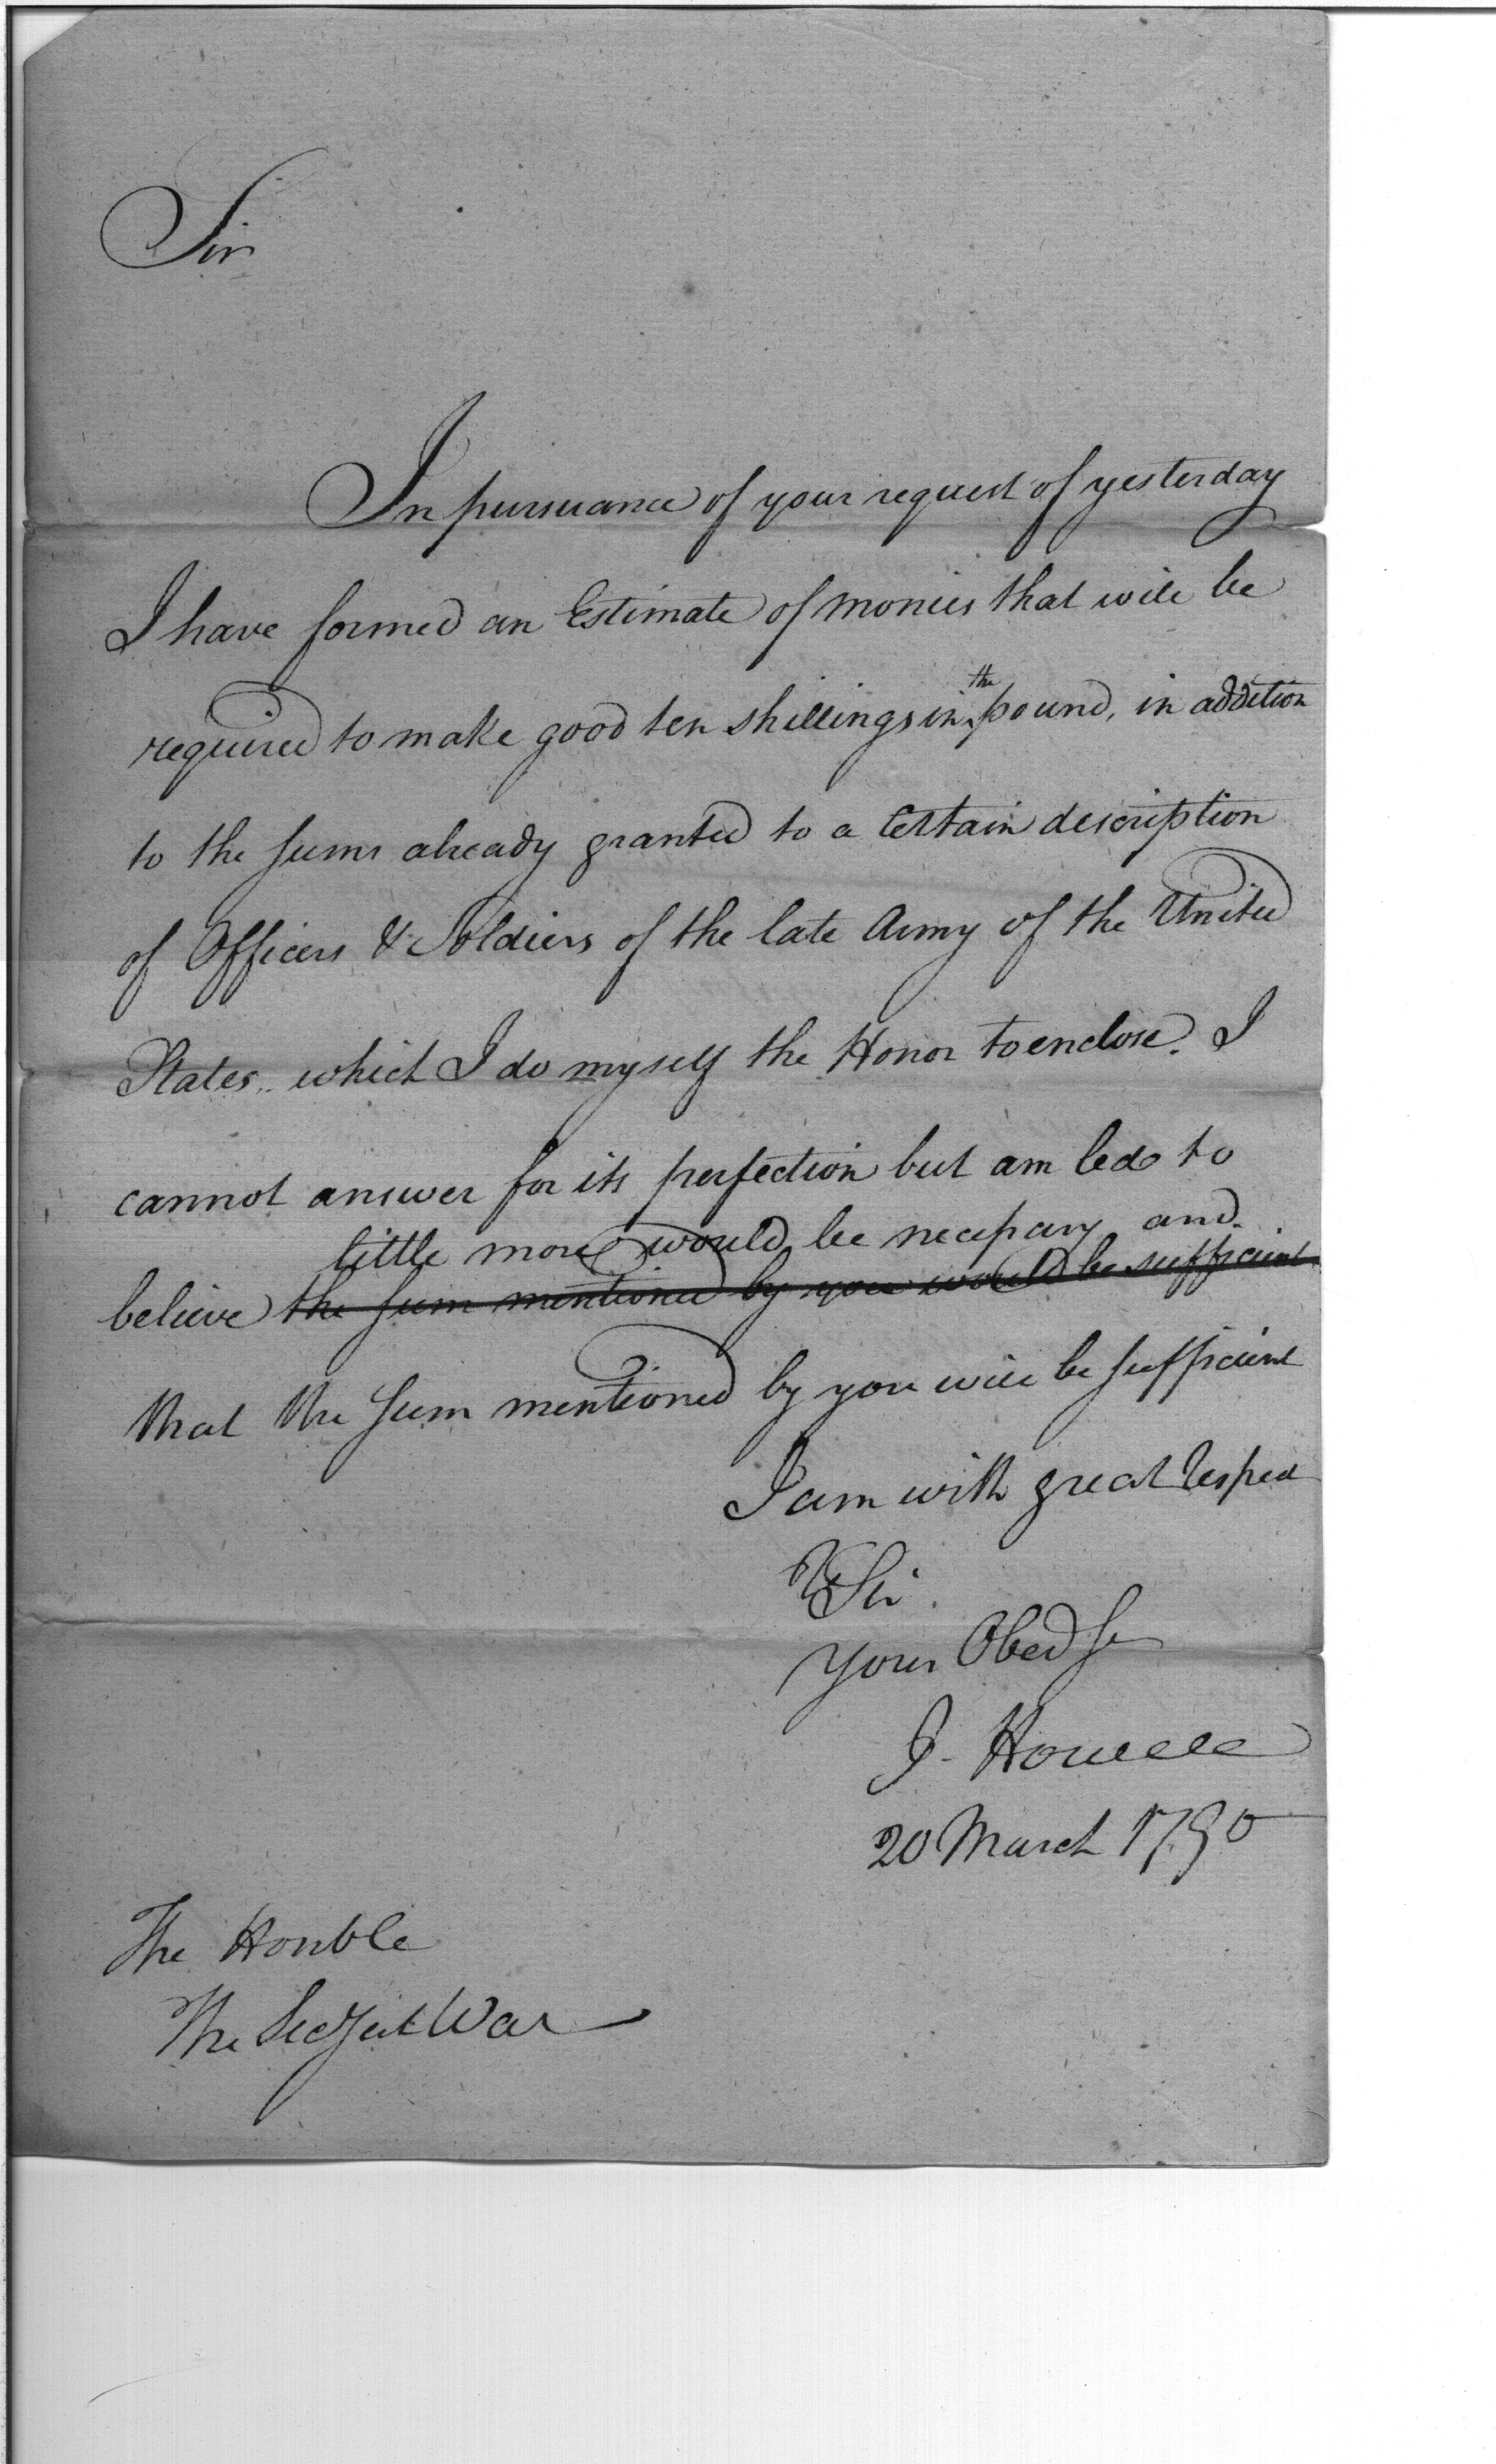 Sir
In pursuance of your request of yesterday
I have formed an Estimate of monies that will be
required to make good ten shillings in the pound, in addition
to the sums already granted to a Certain description
of Officers & Soldiers of the late Army of the United
States.. which I do myself the Honor to enclose. I
cannot answer for its perfection but am led to
little more would be necessary and
believe the sum mentioned by you would be sufficient
that the sum mentioned by you will be sufficient
I am with great Respect
Sir.
Your Obed Se
J. Howell
20 March 1790
The Honble
The Secy at War